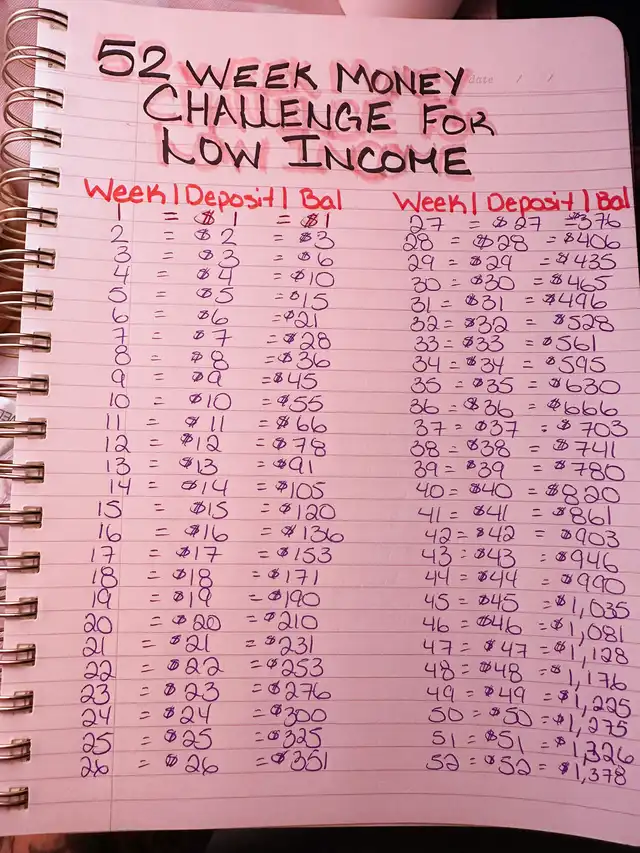 date / /
52 WEEK MONEY
CHALLENGE FOR
LOW INCOME
Week | Deposit | Bal
1 = $1 = $1
2 = $2 = $3
3 = $3 = $6
4 = $4 = $10
5 = $5 = $15
6 = $6 = $21
7 = $7 = $28
8 = $8 = $36
9 = $9 = $45
10 = $10 = $55
11 = $11 = $66
12 = $12 = $78
13 = $13 = $91
14 = $14 = $105
15 = $15 = $120
16 = $16 = $136
17 = $17 = $153
18 = $18 = $171
19 = $19 = $190
20 = $20 = $210
21 = $21 = $231
22 = $22 = $253
23 = $23 = $276
24 = $24 = $300
25 = $25 = $325
26 = $26 = $351
Week | Deposit | Bal
27 = $27 = $376
28 = $28 = $406
29 = $29 = $435
30 = $30 = $465
31 = $31 = $496
32 = $32 = $528
33 = $33 = $561
34 = $34 = $595
35 = $35 = $630
36 = $36 = $666
37 = $37 = $703
38 = $38 = $741
39 = $39 = $780
40 = $40 = $820
41 = $41 = $861
42 = $42 = $903
43 = $43 = $946
44 = $44 = $990
45 = $45 = $1,035
46 = $46 = $1,081
47 = $47 = $1,128
48 = $48 = $1,176
49 = $49 = $1,225
50 = $50 = $1,275
51 = $51 = $1,326
52 = $52 = $1,378